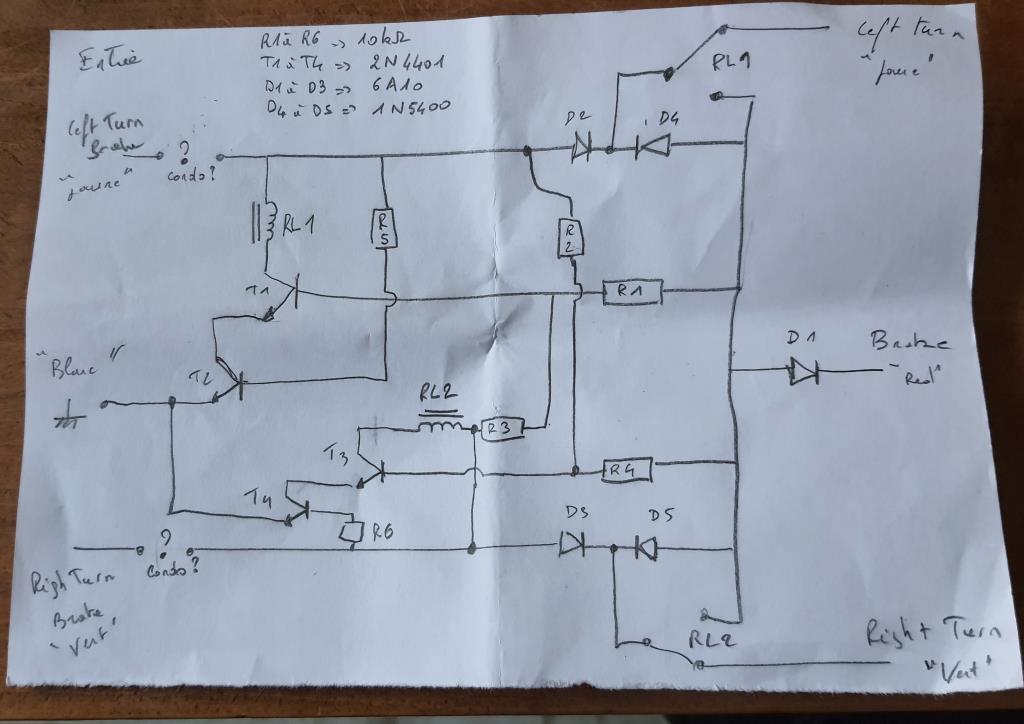 Entrée
R1 à R6 => 10kΩ
T1 à T4 => 2N4401
D1 à D3 => 6A10
D4 à D5 => 1N5400
Left Turn
"Jaune"
RL1
Left Turn
Brake
"Jaune"
?
Condo?
D2
D4
RL1
R5
R2
T1
R1
"Blanc"
T2
D1
Brake
"Red"
RL2
R3
T3
R4
T4
R6
D3
D5
?
Condo?
Right Turn
Brake
"Vert"
RL2
Right Turn
"Vert"